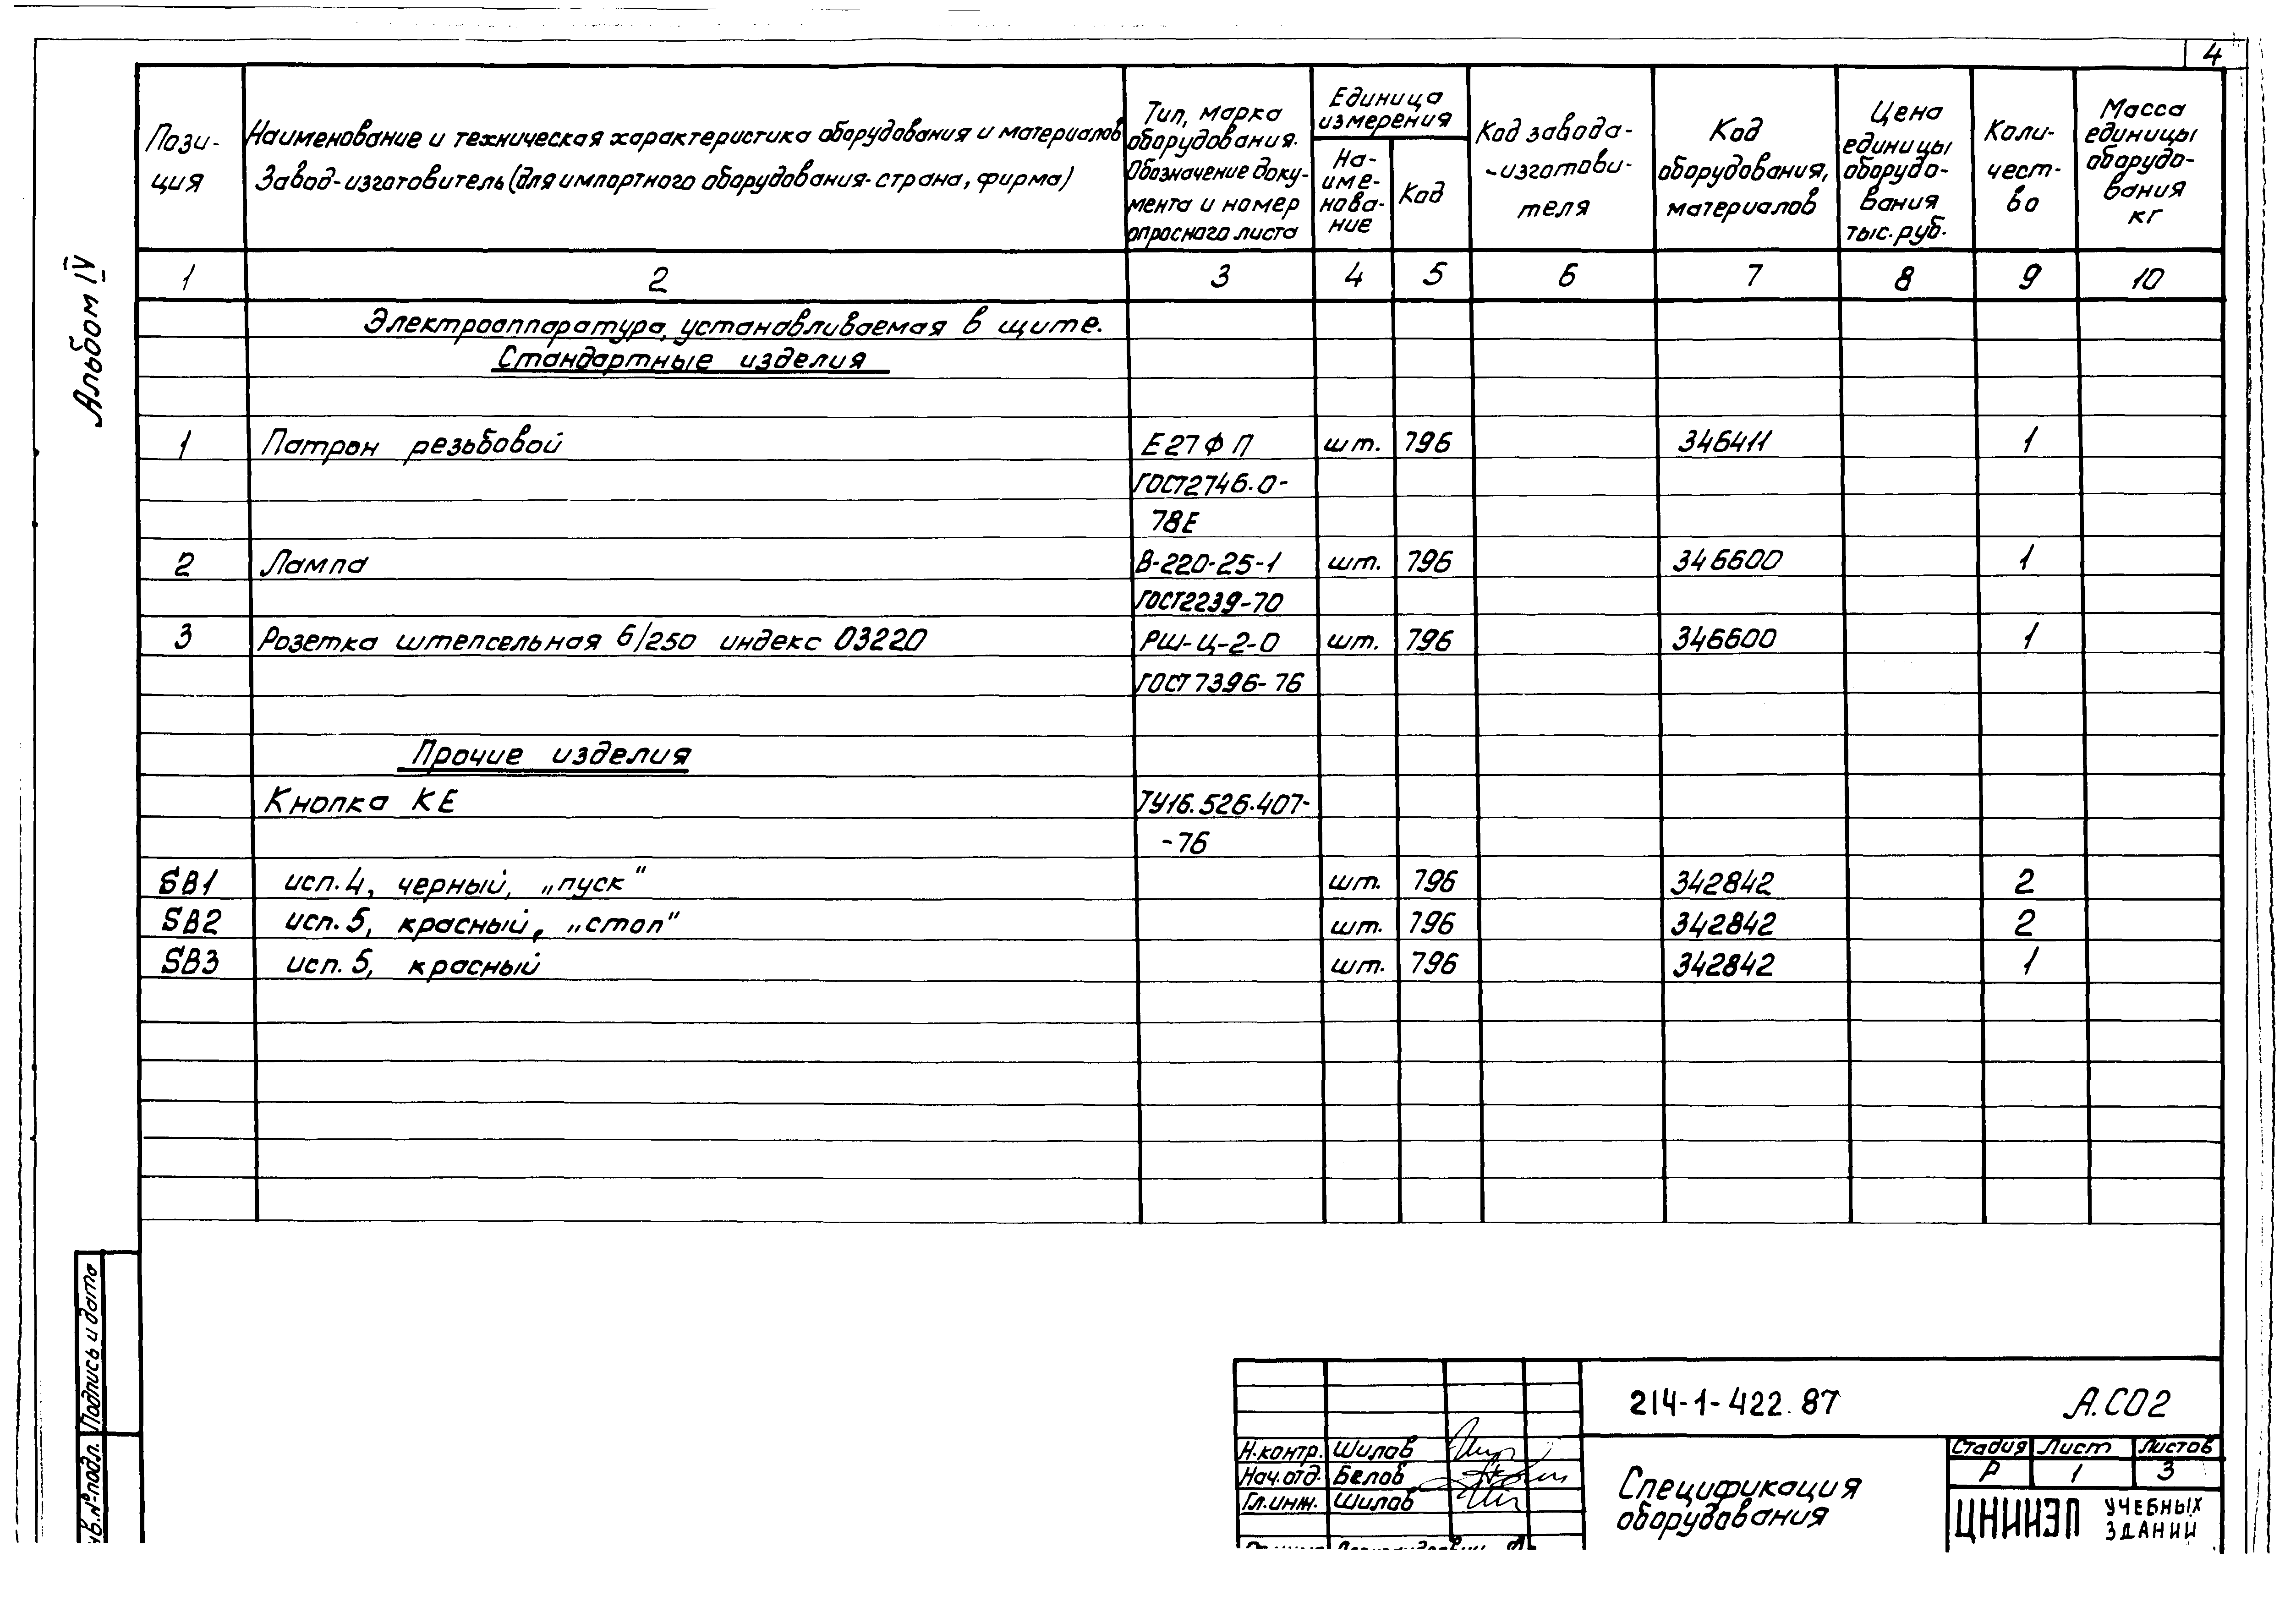 4
Альбом IV
Пози-
ция
Наименование и техническая характеристика оборудования и материалов
Завод-изготовитель (для импортного оборудования-страна, фирма)
Тип, марка
оборудования.
Обозначение доку-
мента и номер
опросного листа
Единица
измерения
На-
име-
нова-
ние
Код
Код завода-
-изготови-
теля
Код
оборудования,
материалов
Цена
единицы
оборудо-
вания
тыс. руб.
Коли-
чест-
во
Масса
единицы
оборудо-
вания
кг
1 2 3 4 5 6 7 8 9 10
Электроаппаратура, устанавливаемая в щите.
Стандартные изделия
1 Патрон резьбовой Е27ФП шт. 796 346411 1
ГОСТ2746.0-
78Е
2 Лампа В-220-25-1 шт. 796 346600 1
ГОСТ2239-70
3 Розетка штепсельная 6/250 индекс 03220 РШ-Ц-2-0 шт. 796 346600 1
ГОСТ7396-76
Прочие изделия
Кнопка КЕ ТУ16.526.407-
-76
SB1 исп. 4, черный, „пуск" шт. 796 342842 2
SB2 исп. 5, красный, „стоп" шт. 796 342842 2
SB3 исп. 5, красный шт. 796 342842 1
Подпись и дата
№ подл.
214-1-422.87 А.СО2
Н.контр. Шилов
Нач.отд. Белов
Гл.инж. Шилов
Спецификация
оборудования
Стадия Лист Листов
Р 1 3
ЦНИИЭП УЧЕБНЫХ
ЗДАНИЙ